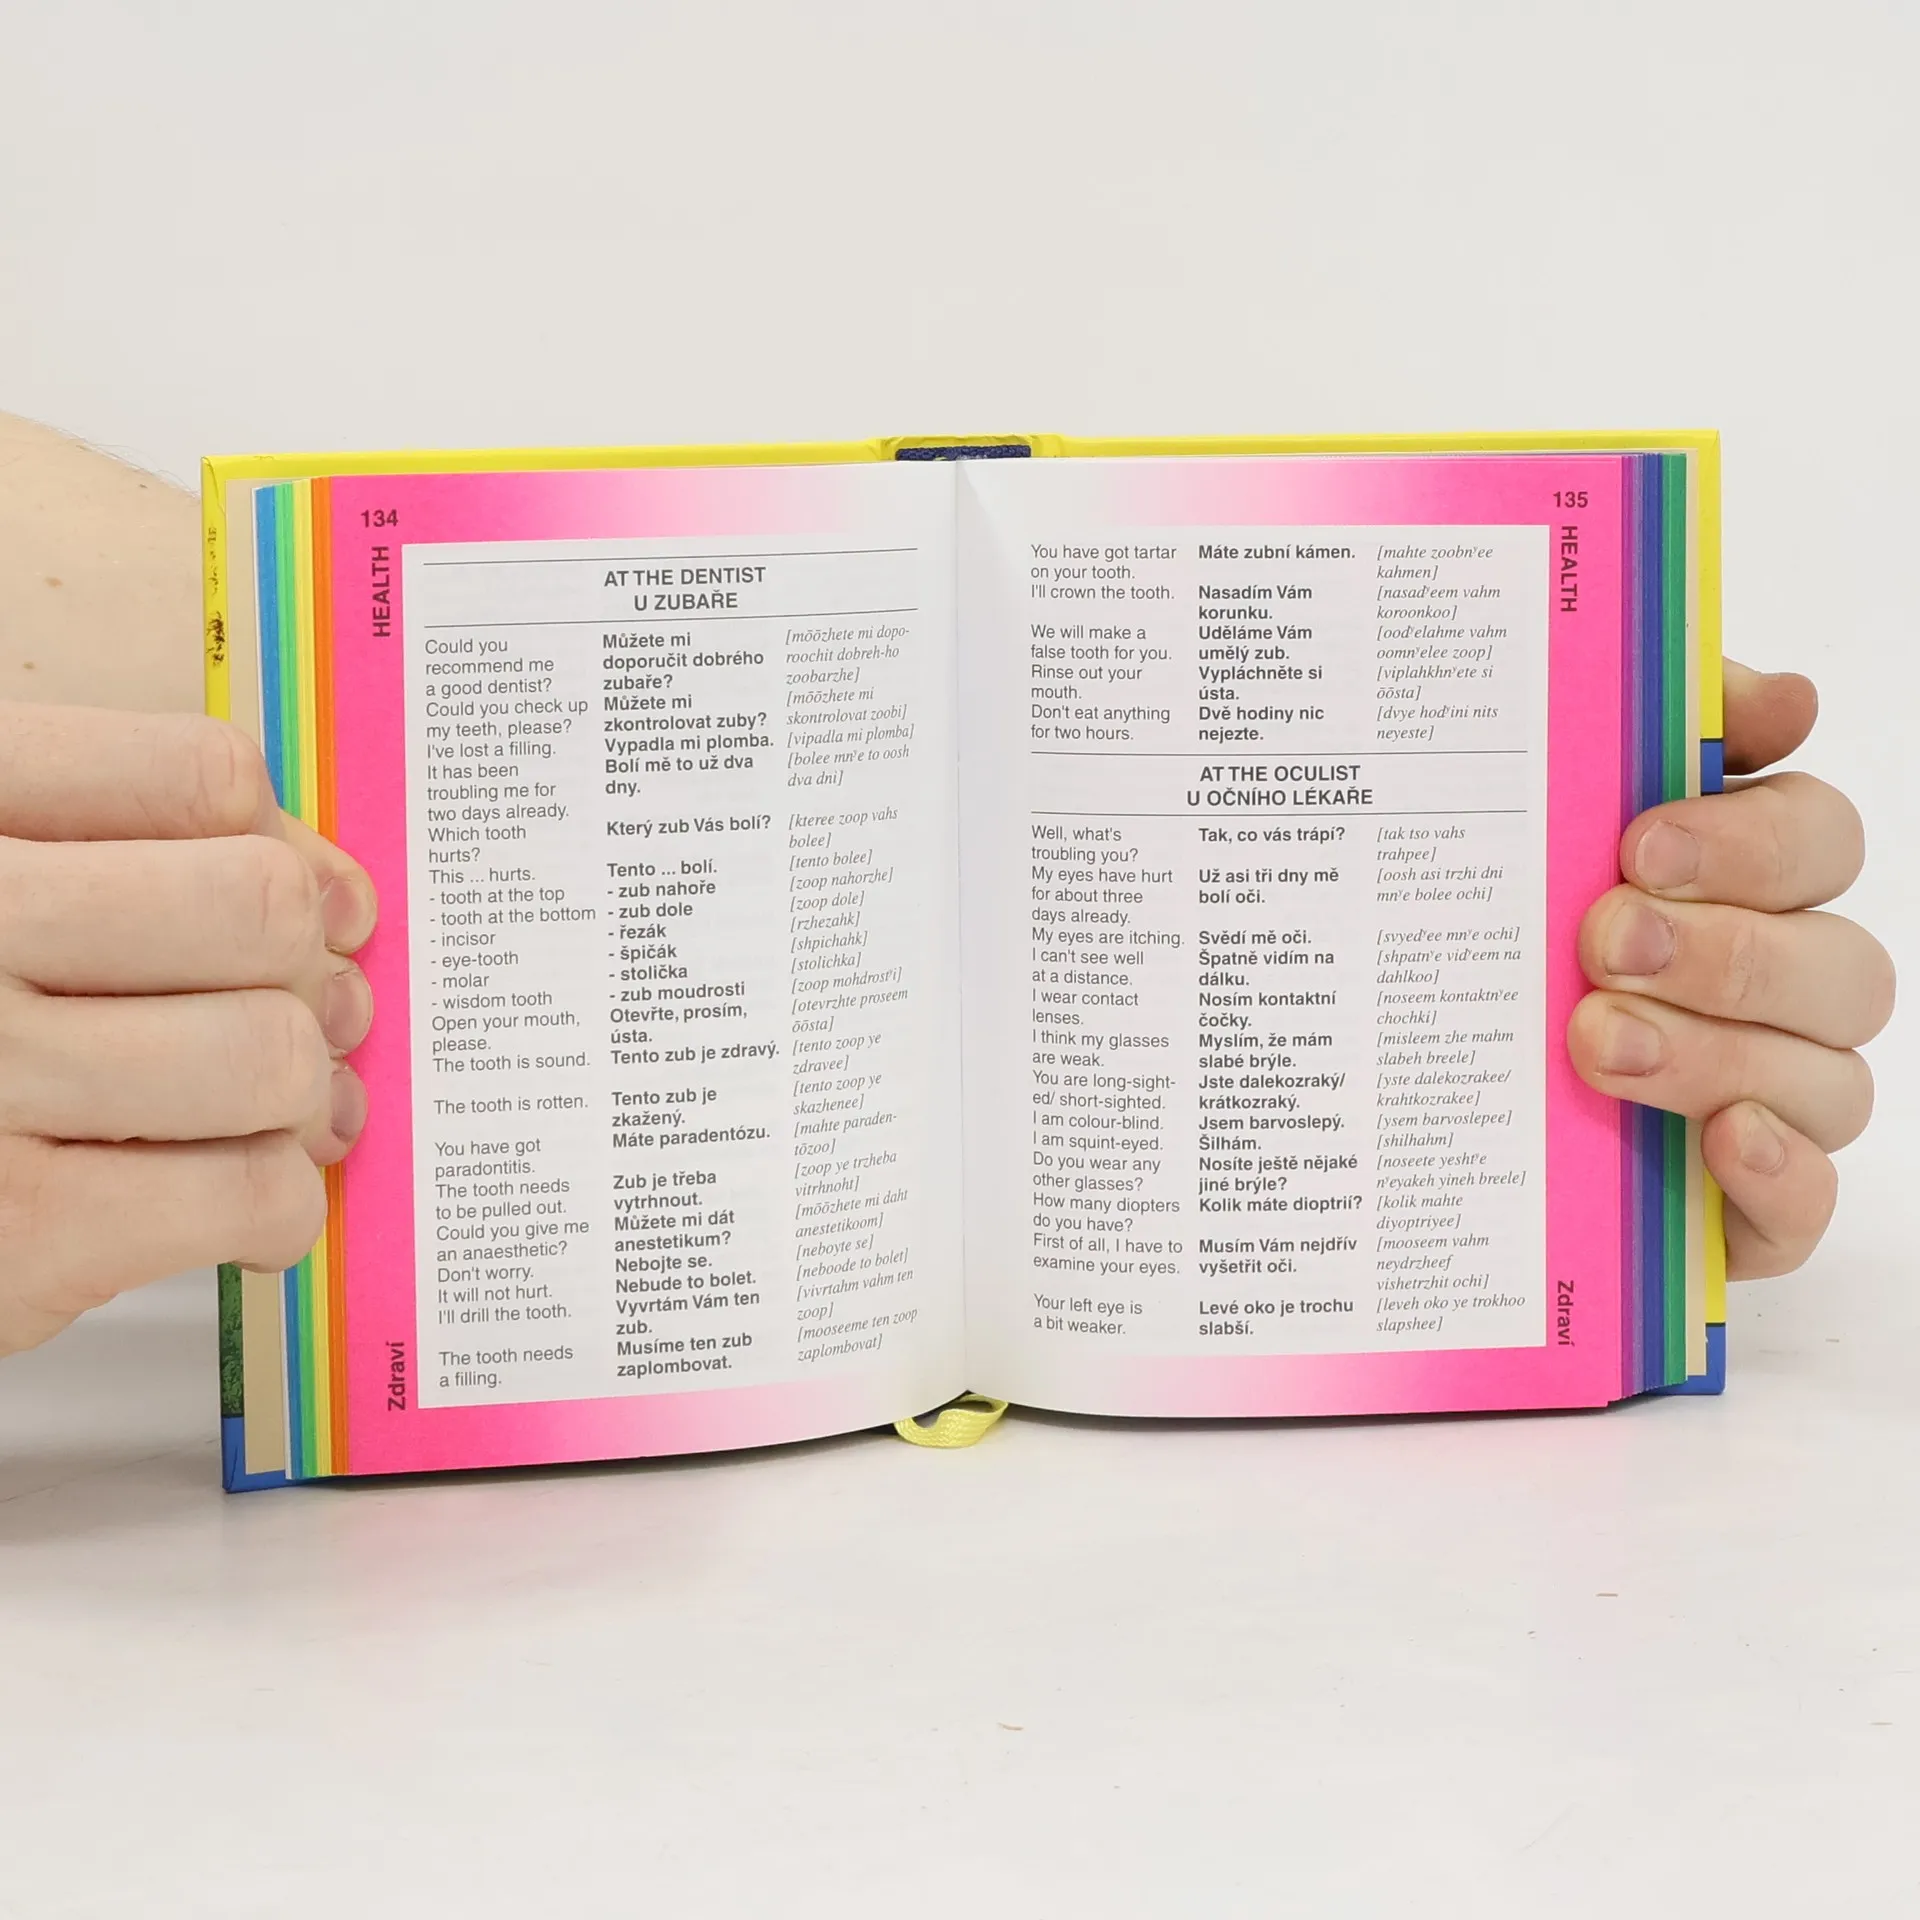 134
HEALTH
AT THE DENTIST
U ZUBAŘE
Could you
recommend me
a good dentist?
Could you check up
my teeth, please?
I've lost a filling.
It has been
troubling me for
two days already.
Which tooth
hurts?
This ... hurts.
- tooth at the top
- tooth at the bottom
- incisor
- eye-tooth
- molar
- wisdom tooth
Open your mouth,
please.
The tooth is sound.
The tooth is rotten.
You have got
paradontitis.
The tooth needs
to be pulled out.
Could you give me
an anaesthetic?
Don't worry.
It will not hurt.
I'll drill the tooth.
The tooth needs
a filling.
Můžete mi
doporučit dobrého
zubaře?
Můžete mi
zkontrolovat zuby?
Vypadla mi plomba.
Bolí mě to už dva
dny.
Který zub Vás bolí?
Tento ... bolí.
- zub nahoře
- zub dole
- řezák
- špičák
- stolička
- zub moudrosti
Otevřte, prosím,
ústa.
Tento zub je zdravý.
Tento zub je
zkažený.
Máte paradentózu.
Zub je třeba
vytrhnout.
Můžete mi dát
anestetikum?
Nebojte se.
Nebude to bolet.
Vyvrtám Vám ten
zub.
Musíme ten zub
zaplombovat.
[mōōzhete mi dopo-
roochit dobreh-ho
zoobarzhe]
[mōōzhete mi
skontrolovat zoobi]
[vipadla mi plomba]
[bolee mnʸe to oosh
dva dni]
[kteree zoop vahs
bolee]
[tento bolee]
[zoop nahorzhe]
[zoop dole]
[rzhezahk]
[shpichahk]
[stolichka]
[zoop mohdrostʸi]
[otevrzhte proseem
ōōsta]
[tento zoop ye
zdravee]
[tento zoop ye
skazhenee]
[mahte paraden-
tōzoo]
[zoop ye trzheba
vitrhnoht]
[mōōzhete mi daht
anestetikoom]
[neboyte se]
[neboode to bolet]
[vivrtahm vahm ten
zoop]
[mooseeme ten zoop
zaplombovat]
Zdraví
135
HEALTH
You have got tartar
on your tooth.
I'll crown the tooth.
We will make a
false tooth for you.
Rinse out your
mouth.
Don't eat anything
for two hours.
Máte zubní kámen.
Nasadím Vám
korunku.
Uděláme Vám
umělý zub.
Vypláchněte si
ústa.
Dvě hodiny nic
nejezte.
[mahte zoobnʸee
kahmen]
[nasadʸeem vahm
koroonkoo]
[oodʸelahme vahm
oomnʸelee zoop]
[viplahkhnʸete si
ōōsta]
[dvye hodʸini nits
neyeste]
AT THE OCULIST
U OČNÍHO LÉKAŘE
Well, what's
troubling you?
My eyes have hurt
for about three
days already.
My eyes are itching.
I can't see well
at a distance.
I wear contact
lenses.
I think my glasses
are weak.
You are long-sight-
ed/ short-sighted.
I am colour-blind.
I am squint-eyed.
Do you wear any
other glasses?
How many diopters
do you have?
First of all, I have to
examine your eyes.
Your left eye is
a bit weaker.
Tak, co vás trápí?
Už asi tři dny mě
bolí oči.
Svědí mě oči.
Špatně vidím na
dálku.
Nosím kontaktní
čočky.
Myslím, že mám
slabé brýle.
Jste dalekozraký/
krátkozraký.
Jsem barvoslepý.
Šilhám.
Nosíte ještě nějaké
jiné brýle?
Kolik máte dioptrií?
Musím Vám nejdřív
vyšetřit oči.
Levé oko je trochu
slabší.
[tak tso vahs
trahpee]
[oosh asi trzhi dni
mnʸe bolee ochi]
[svyedʸee mnʸe ochi]
[shpatnʸe vidʸeem na
dahlkoo]
[noseem kontaktnʸee
chochki]
[misleem zhe mahm
slabeh breele]
[yste dalekozrakee/
krahtkozrakee]
[ysem barvoslepee]
[shilhahm]
[noseete yeshtʸe
nʸeyakeh yineh breele]
[kolik mahte
diyoptriyee]
[mooseem vahm
neydrzheef
vishetrzhit ochi]
[leveh oko ye trokhoo
slapshee]
Zdraví